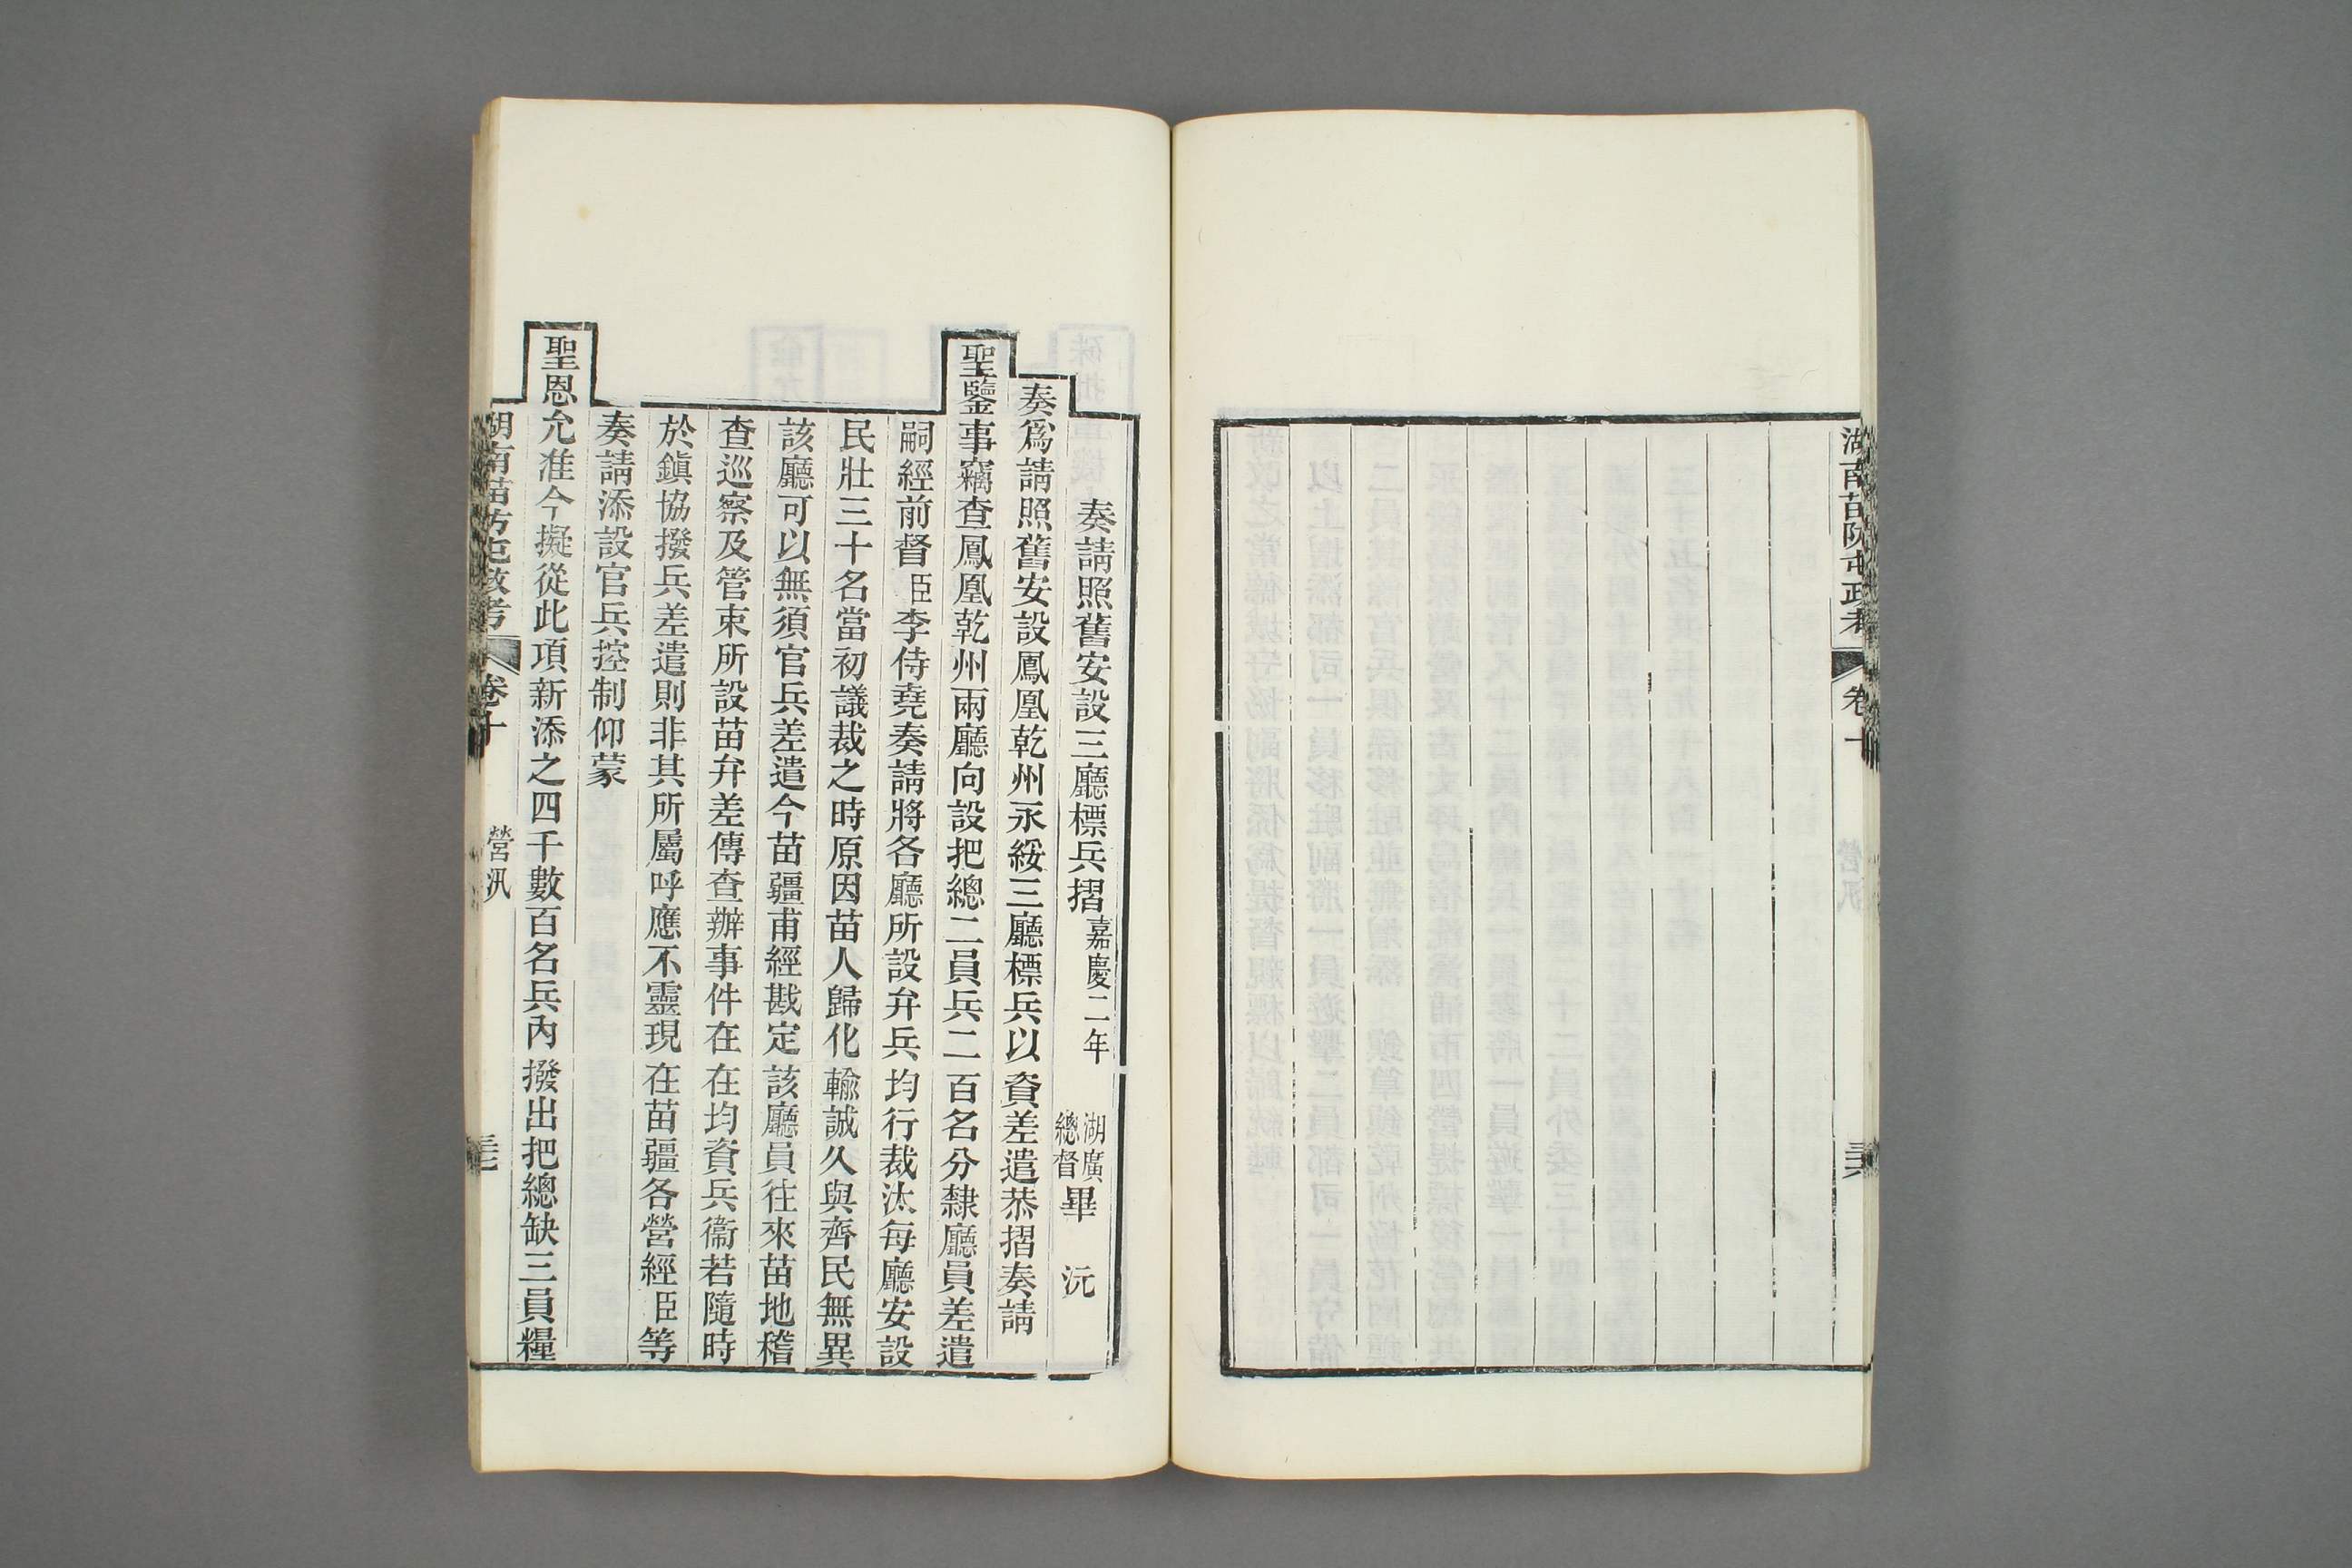 湖南苗防屯政考
卷十
奏請照舊安設三廳標兵摺嘉慶二年 湖廣總督畢 沅
奏爲請照舊安設鳳凰乾州永綏三廳標兵以資差遣恭摺奏請
聖鑒事竊查鳳凰乾州兩廳向設把總二員兵二百名分隸廳員差遣
嗣經前督臣李侍堯奏請將各廳所設弁兵均行裁汰每廳安設
民壯三十名當初議裁之時原因苗人歸化輸誠久與齊民無異
該廳可以無須官兵差遣今苗疆甫經戡定該廳員往來苗地稽
查巡察及管束所設苗弁差傳查辦事件在在均資兵衞若隨時
於鎭協撥兵差遣則非其所屬呼應不靈現在苗疆各營經臣等
奏請添設官兵控制仰蒙
聖恩允准今擬從此項新添之四千數百名兵內撥出把總缺三員糧
湖南苗防屯政考
卷十
營汛